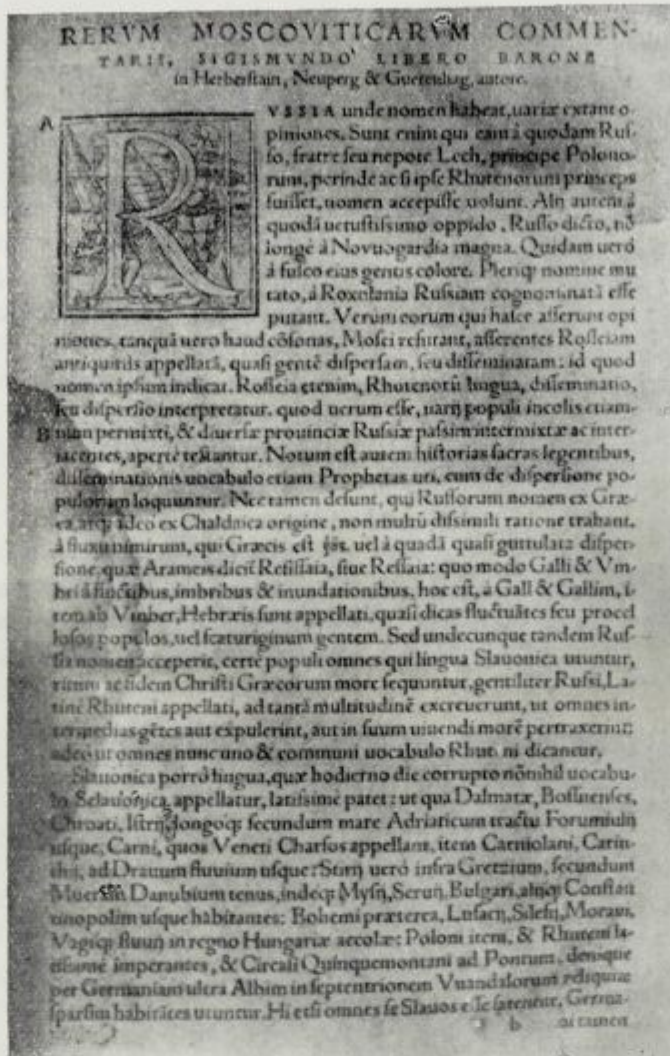 RERVM MOSCOVITICARVM COMMEN-
TARII, SIGISMVNDO LIBERO BARONE
in Herberstain, Neuperg & Guettenhag, autore.
A
RVSSIA unde nomen habeat, uariæ extant o-
piniones. Sunt enim qui eam à quodam Rus-
so, fratre seu nepote Lech, principe Polono-
rum, perinde ac si ipse Rhutenorum princeps
fuisset, nomen accepisse uolunt. Alij autem à
quodã uetustissimo oppido, Russo dicto, nõ
longè à Novuogardia magna. Quidam uerò
à fusco eius gentis colore. Pleriqȝ nomine mu
tato, à Roxolania Russiam cognominatã esse
putant. Verum eorum qui hasce asserunt opi
niones, tanquã uero haud cõsonas, Mosci refutant, asserentes Rosseiam
antiquitùs appellatã, quasi gentẽ dispersam, seu disseminatam: id quod
nomen ipsum indicat. Rosseia etenim, Rhutenorũ lingua, disseminatio,
seu dispersio interpretatur. quod uerum esse, uarij populi incolis etiam-
B
num permixti, & diuersæ prouinciæ Russiæ passim intermixtæ ac inter-
iacentes, apertè testantur. Notum est autem historias sacras legentibus,
disseminationis uocabulo etiam Prophetas uti, cum de dispersione po-
pulorum loquuntur. Nec tamen desunt, qui Russorum nomen ex Græ-
ca, atqȝ adeo ex Chaldaica origine, non multũ dissimili ratione trahant.
à fluxu nimirum, qui Græcis est uel à quadã quasi guttulata disper-
sione, quæ Arameis dicit̃ Resissaia, siue Ressaia: quo modo Galli & Vm-
bri à fluctibus, imbribus & inundationibus, hoc est, à Gall & Gallim, i-
tem ab Vmber, Hebræis sunt appellati, quasi dicas fluctuãtes seu procel
losos populos, uel scaturiginum gentem. Sed undecunque tandem Rus-
sia nomen acceperit, certè populi omnes qui lingua Slauonica utuntur,
ritum ac fidem Christi Græcorum more sequuntur, gentiliter Russi, La-
tinè Rhuteni appellati, ad tantã multitudinẽ excreuerunt, ut omnes in-
termedias gẽtes aut expulerint, aut in suum uiuendi morẽ pertraxerint:
adeo ut omnes nunc uno & communi uocabulo Rhuteni dicantur.
Slauonica porrò lingua, quæ hodierno die corrupto nõnihil uocabu-
lo Sclauonica appellatur, latissimè patet: ut qua Dalmatæ, Bossnenses,
Chroati, Istrij, longoqȝ secundum mare Adriaticum tractu Forumiulij
usque, Carni, quos Veneti Charsos appellant, item Carniolani, Carin
thij, ad Drauum fluuium usque: Stirij uerò infra Gretzium, secundum
Muer Danubium tenus, indeqȝ Mysij, Seruij, Bulgari, alijqȝ Constan
tinopolim usque habitantes: Bohemi præterea, Lusacij, Silesij, Moraui,
Vagiqȝ fluuij in regno Hungariæ accolæ: Poloni item, & Rhuteni la-
tissimè imperantes, & Circasi Quinquemontani ad Pontum, denique
per Germaniam ultra Albim in septentrionem Vuandalorum reliquiæ
sparsim habitãtes utuntur. Hi etsi omnes se Slauos esse fatentur, Germa-
b ni tamen